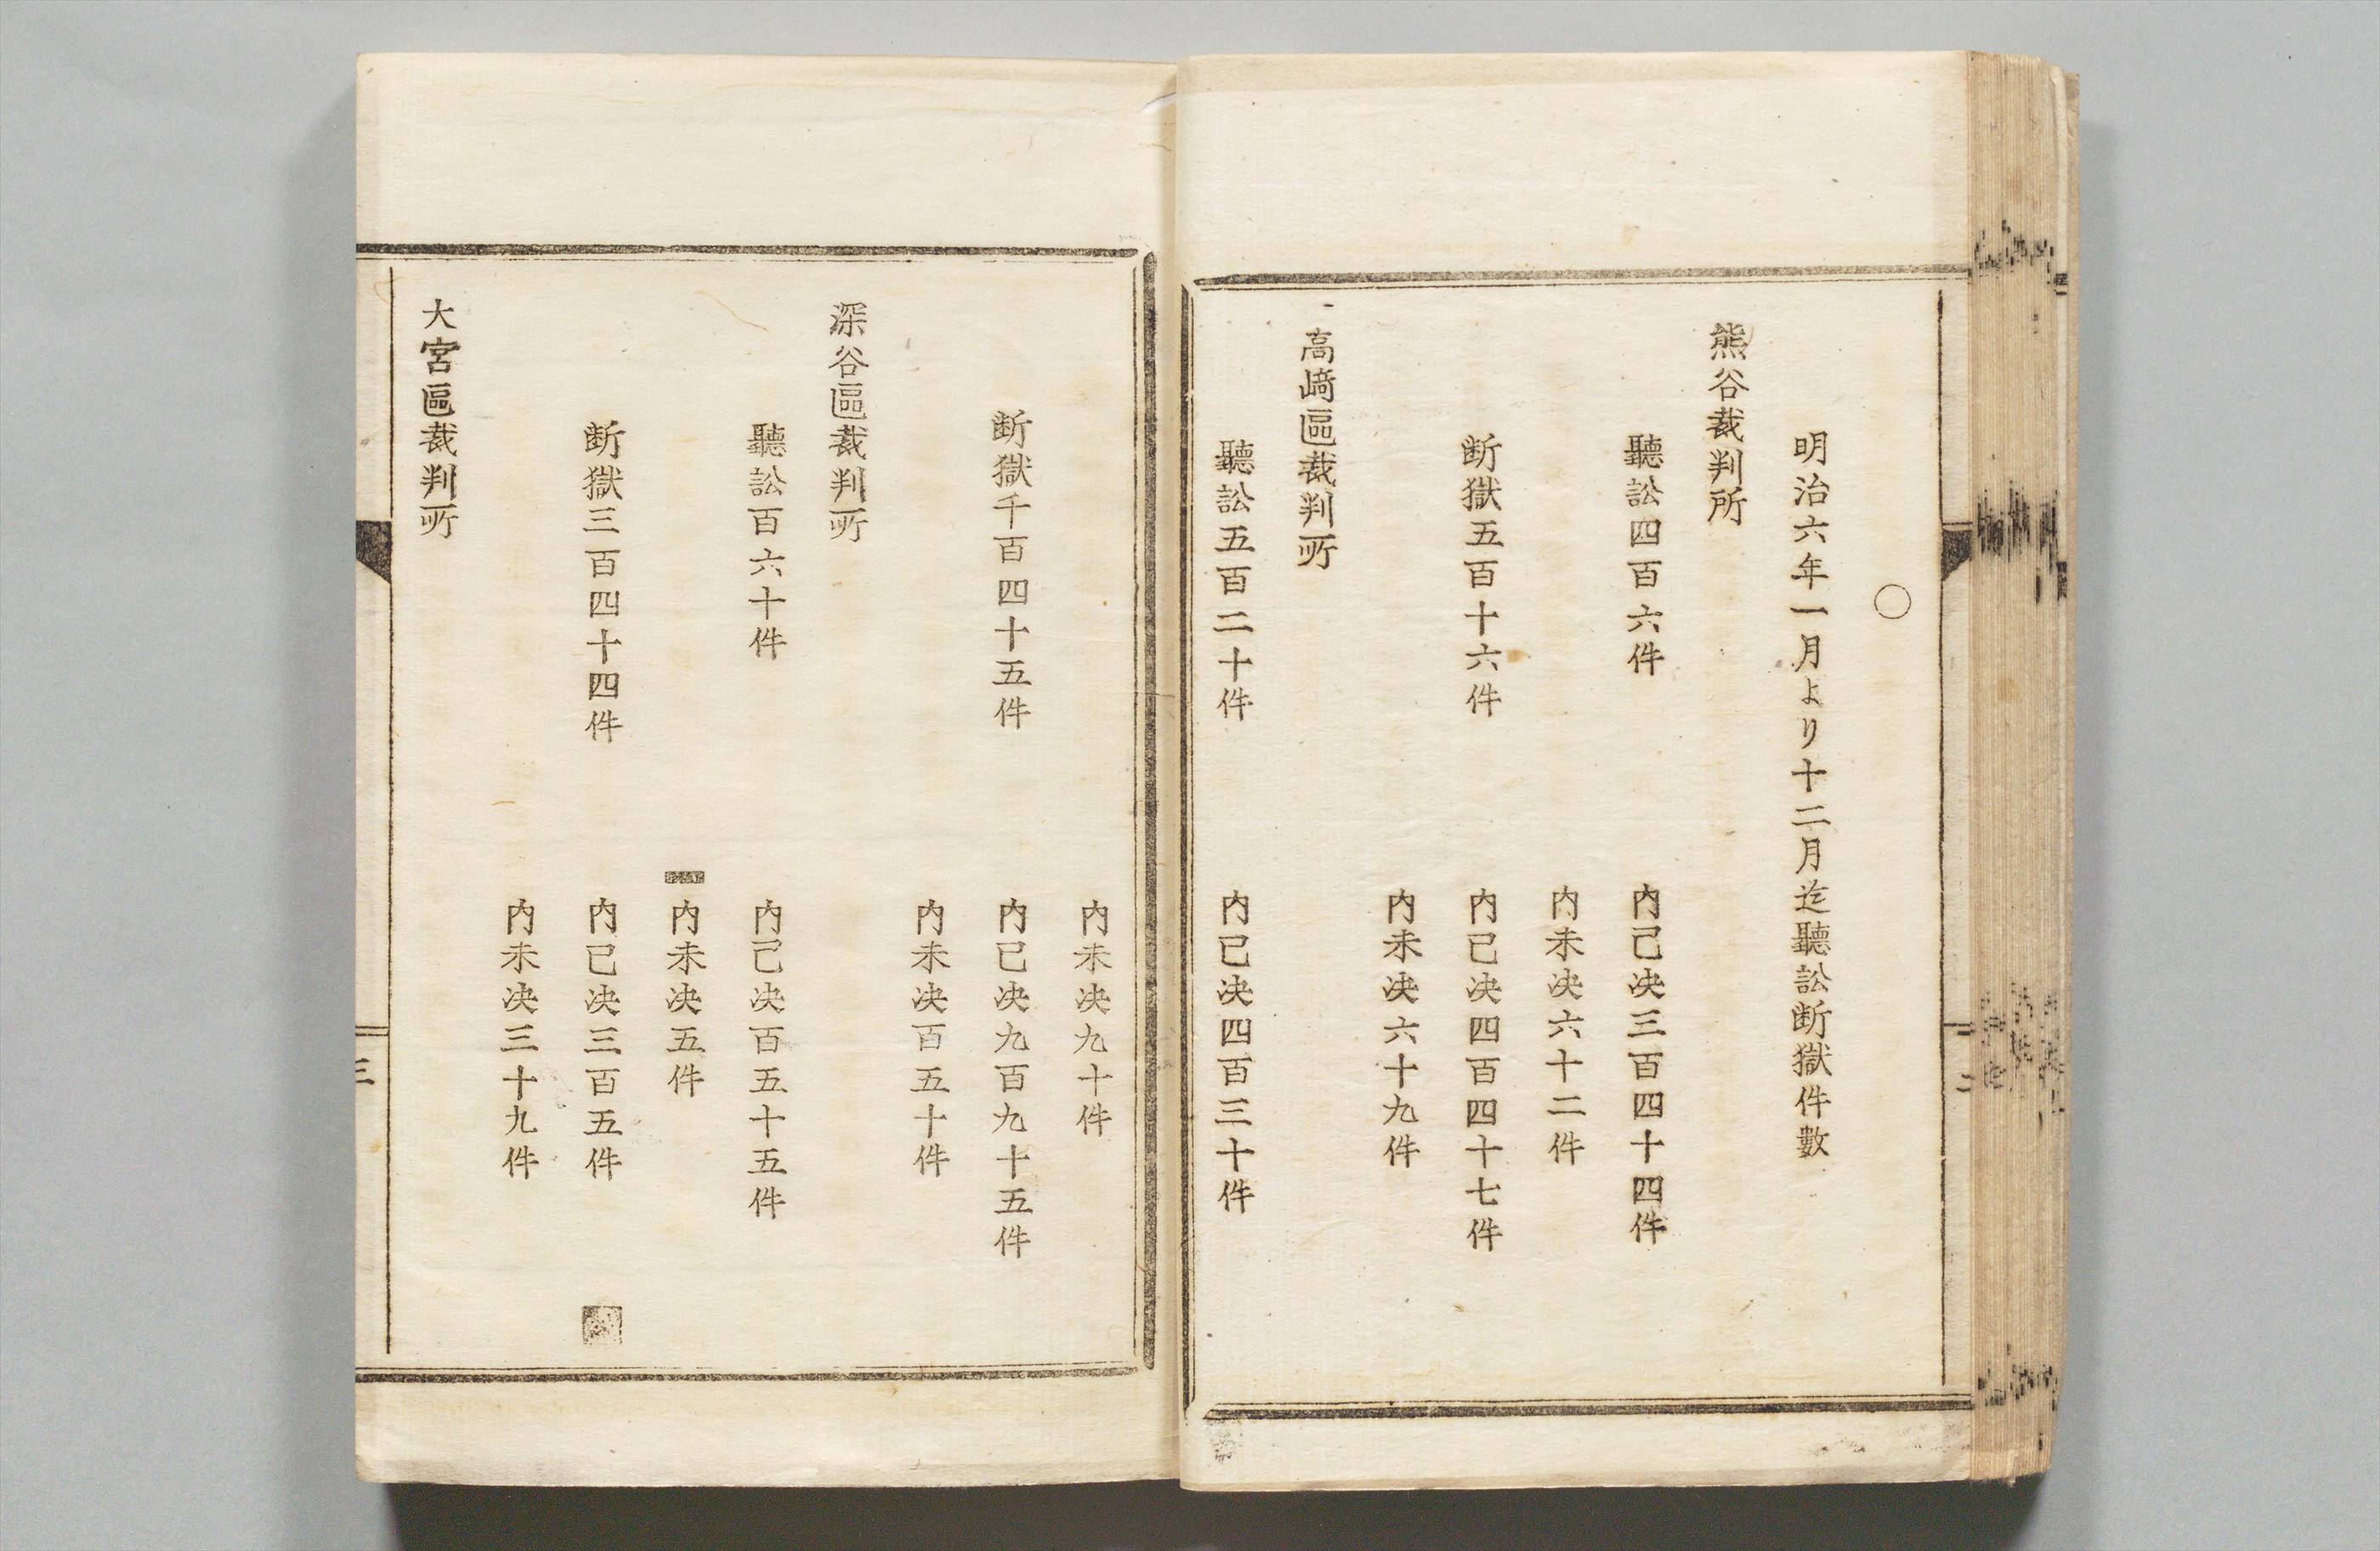 ○
明治六年一月より十二月迄聽訟断獄件數
熊谷裁判所
聽訟四百六件 内已决三百四十四件
内未决六十二件
断獄五百十六件 内已决四百四十七件
内未决六十九件
高﨑區裁判所
聽訟五百二十件 内已决四百三十件
内未决九十件
断獄千百四十五件 内已决九百九十五件
内未决百五十件
深谷區裁判所
聽訟百六十件 内已决百五十五件
内未决五件
断獄三百四十四件 内已决三百五件
内未决三十九件
大宮區裁判所
三